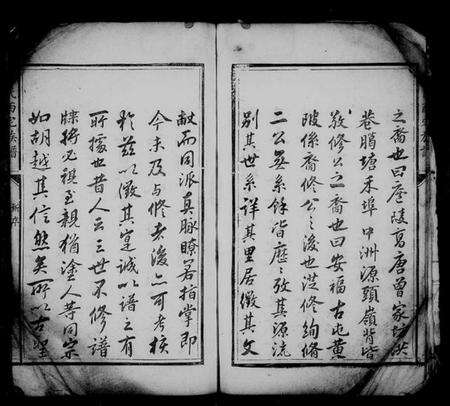 之裔也曰廬陵高唐曾家
巷腊塘木埠中洲源頭嶺背皆
敦修公之裔也曰安福古屯黄
陂係裔修公之後也洪修絢脩
二公無系餘皆歷歷攷其源流
別其世系詳其里居徵其文
献而同派真脉瞭若指掌即
今未及与修者後亦可考核
於兹以徵其寔誠以譜之有
所據也昔人云三世不修譜
牒將兄祖至親猶塗人等同宗
如胡越其信然矣所以古聖